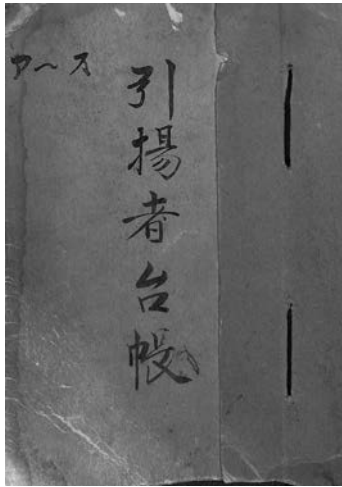 ア～ス
引揚者台帳